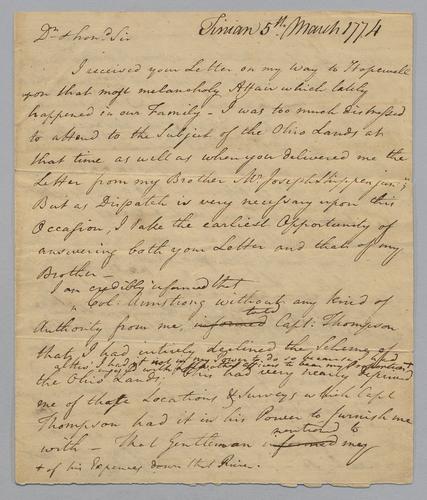 Tinian 5th March 1774
Dr & hond Sir
I received your Letter on my Way to Hopewell
upon that most melancholy Affair which lately
happened in our Family - I was too much distressed
to attend to the Subject of the Ohio Lands at
that time as well as when you delivered me the
Letter from my Brother Mr Joseph Shippen junr;
But as Dispatch is very necessary upon this
Occasion, I take the earliest Opportunity of
answering both your Letter and that of my
Brother -
I am credibly informed that
Col: Armstrong without any kind of
Authority from me, informed told Capt: Thompson
that I had entirely declined the Scheme of
altho' I had it not in my Power to do so because I had
engaged with other Officers to bear my proportion +
the Ohio Lands. This had very nearly deprived
me of those Locations & Surveys which Capt
Thompson had it in his Power to furnish me
with - That Gentleman informed mentioned to me
+ of his Expences down that River.